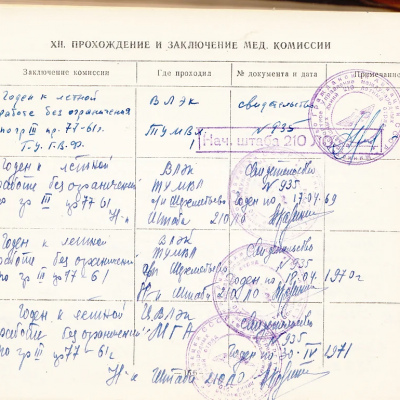 XII. ПРОХОЖДЕНИЕ И ЗАКЛЮЧЕНИЕ МЕД. КОМИССИИ
Заключение комиссии Где проходил № документа и дата Примечание
Годен к летной ВЛЭК свидетельство
работе без ограничения ТУМВЛ № 935
по гр III пр-77-61г.
Т.У.Г.В.Ф. Нач. штаба 210 ЛО
Годен к летной ВЛЭК Свидетельство
работе без ограничений ТУМВЛ № 935
по гр III пр 77 61 а/п Шереметьево Годен по 17.04.69
Н-к Штаба 210 ЛО
Годен к летной ВЛЭК Свидетельство
работе без ограничений ТУМВЛ № 935
по гр III пр 77-61 а/п Шереметьево Годен по 18.04.1970г
Н-к Штаба 210 ЛО
Годен к летной ЦВЛЭК Свидетельство
работе без ограничений МГА № 935
по гр III пр 77-61г Годен по 30-IV 1971
Н-к Штаба 210 ЛО